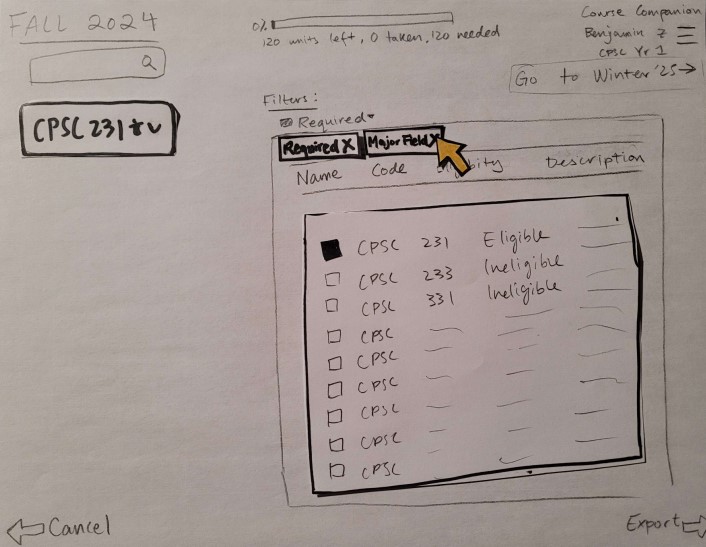 FALL 2024
0%
120 units left, 0 taken, 120 needed
Course Companion
Benjamin Z
CPSC Yr 1
Go to Winter '25→
CPSC 231 ★ v
Filters:
Required
Required X Major Field X
Name Code Description
CPSC 231 Eligible
CPSC 233 Ineligible
CPSC 331 Ineligible
CPSC
CPSC
CPSC
CPSC
CPSC
CPSC
Cancel
Export